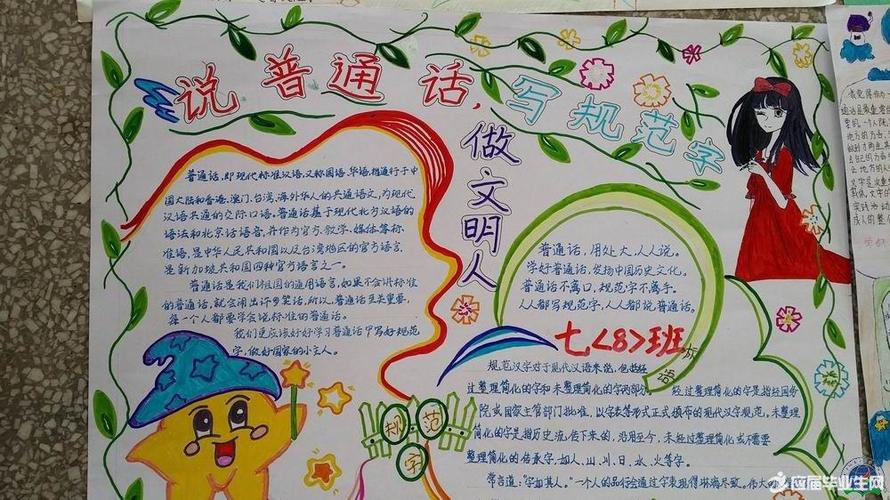 说普通话，写规范字
做文明人
普通话，即现代标准汉语，又称国语、华语，通行于中
国大陆和香港、澳门、台湾、海外华人的共通语文，为现代
汉语共通的交际口语。普通话基于现代北方汉语的
语法和北京话语音，并作为官方、教学、媒体等标
准语，是中华人民共和国以及台湾地区的官方语言
是新加坡共和国四种官方语言之一。
普通话是我们祖国的通用语言，如果不会讲标准
的普通话，就会闹出许多笑话，所以，普通话至关重要，
每一个人都要学会说标准的普通话。
我们更应该好好学习普通话，写好规范
字，做好国家的小主人。
普通话，用处大，人人说。
学好普通话，发扬中国历史文化。
普通话不离口，规范字不离手。
人人都写规范字，人人都说普通话。
七〈8〉班
标语
规范汉字对于现代汉语来说，包括经
过整理简化的字和未整理简化的字两部分。经过整理简化的字是指经国务
院或国家主管部门批准，以字表等形式正式颁布的现代汉字规范。未整理
简化的字是指历史流传下来的，沿用至今，未经过整理简化或不需要
整理简化的传承字，如人、山、川、日、水、火等字。
常言道："字如其人。"一个人的品行会通过字表现得淋漓尽致。伟大的
规范字
应届毕业生网